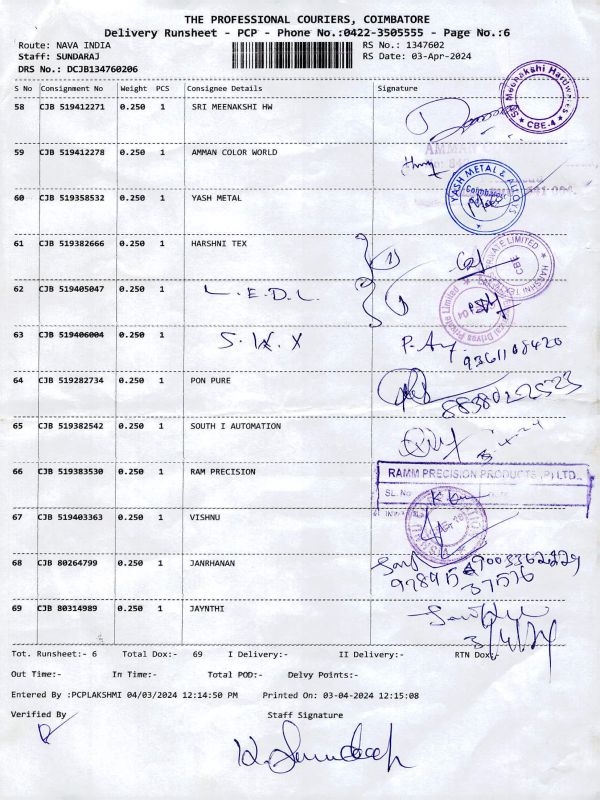 THE PROFESSIONAL COURIERS, COIMBATORE
Delivery Runsheet - PCP - Phone No.:0422-3505555 - Page No.:6
Route: NAVA INDIA RS No.: 1347602
Staff: SUNDARAJ RS Date: 03-Apr-2024
DRS No.: DCJB134760206
S No Consignment No Weight PCS Consignee Details Signature
58 CJB 519412271 0.250 1 SRI MEENAKSHI HW
Sri Meenakshi Hardwares CBE-4
59 CJB 519412278 0.250 1 AMMAN COLOR WORLD
60 CJB 519358532 0.250 1 YASH METAL
YASH METAL & ALLOYS Coimbatore
61 CJB 519382666 0.250 1 HARSHNI TEX
HARSHNI TEX PRIVATE LIMITED CBE
62 CJB 519405047 0.250 1 L.E.D.L
Drives Private Limited
63 CJB 519406004 0.250 1 S.
9361108420
64 CJB 519282734 0.250 1 PON PURE
65 CJB 519382542 0.250 1 SOUTH I AUTOMATION
66 CJB 519383530 0.250 1 RAM PRECISION
RAMM PRECISION PRODUCTS (P) LTD.,
SL. No
67 CJB 519403363 0.250 1 VISHNU
68 CJB 80264799 0.250 1 JANRHANAN
69 CJB 80314989 0.250 1 JAYNTHI
3/4/24
Tot. Runsheet:- 6 Total Dox:- 69 I Delivery:- II Delivery:- RTN Dox:-
Out Time:- In Time:- Total POD:- Delvy Points:-
Entered By :PCPLAKSHMI 04/03/2024 12:14:50 PM Printed On: 03-04-2024 12:15:08
Verified By Staff Signature